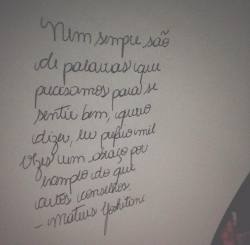 Nem sempre são
de palavras que
precisamos para se
sentir bem, quero
dizer, eu prefiro mil
vezes um abraço por
exemplo do que
certos conselhos.
- Mateus